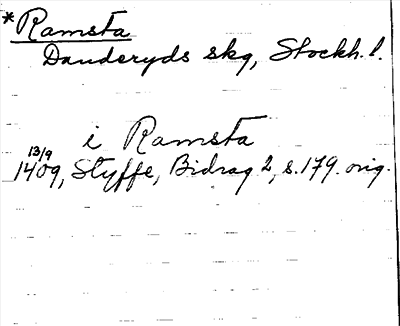 *Ramsta
Danderyds skg, Stockh. l.
i Ramsta
13/9
1409, Styffe, Bidrag 2, s. 179. orig.